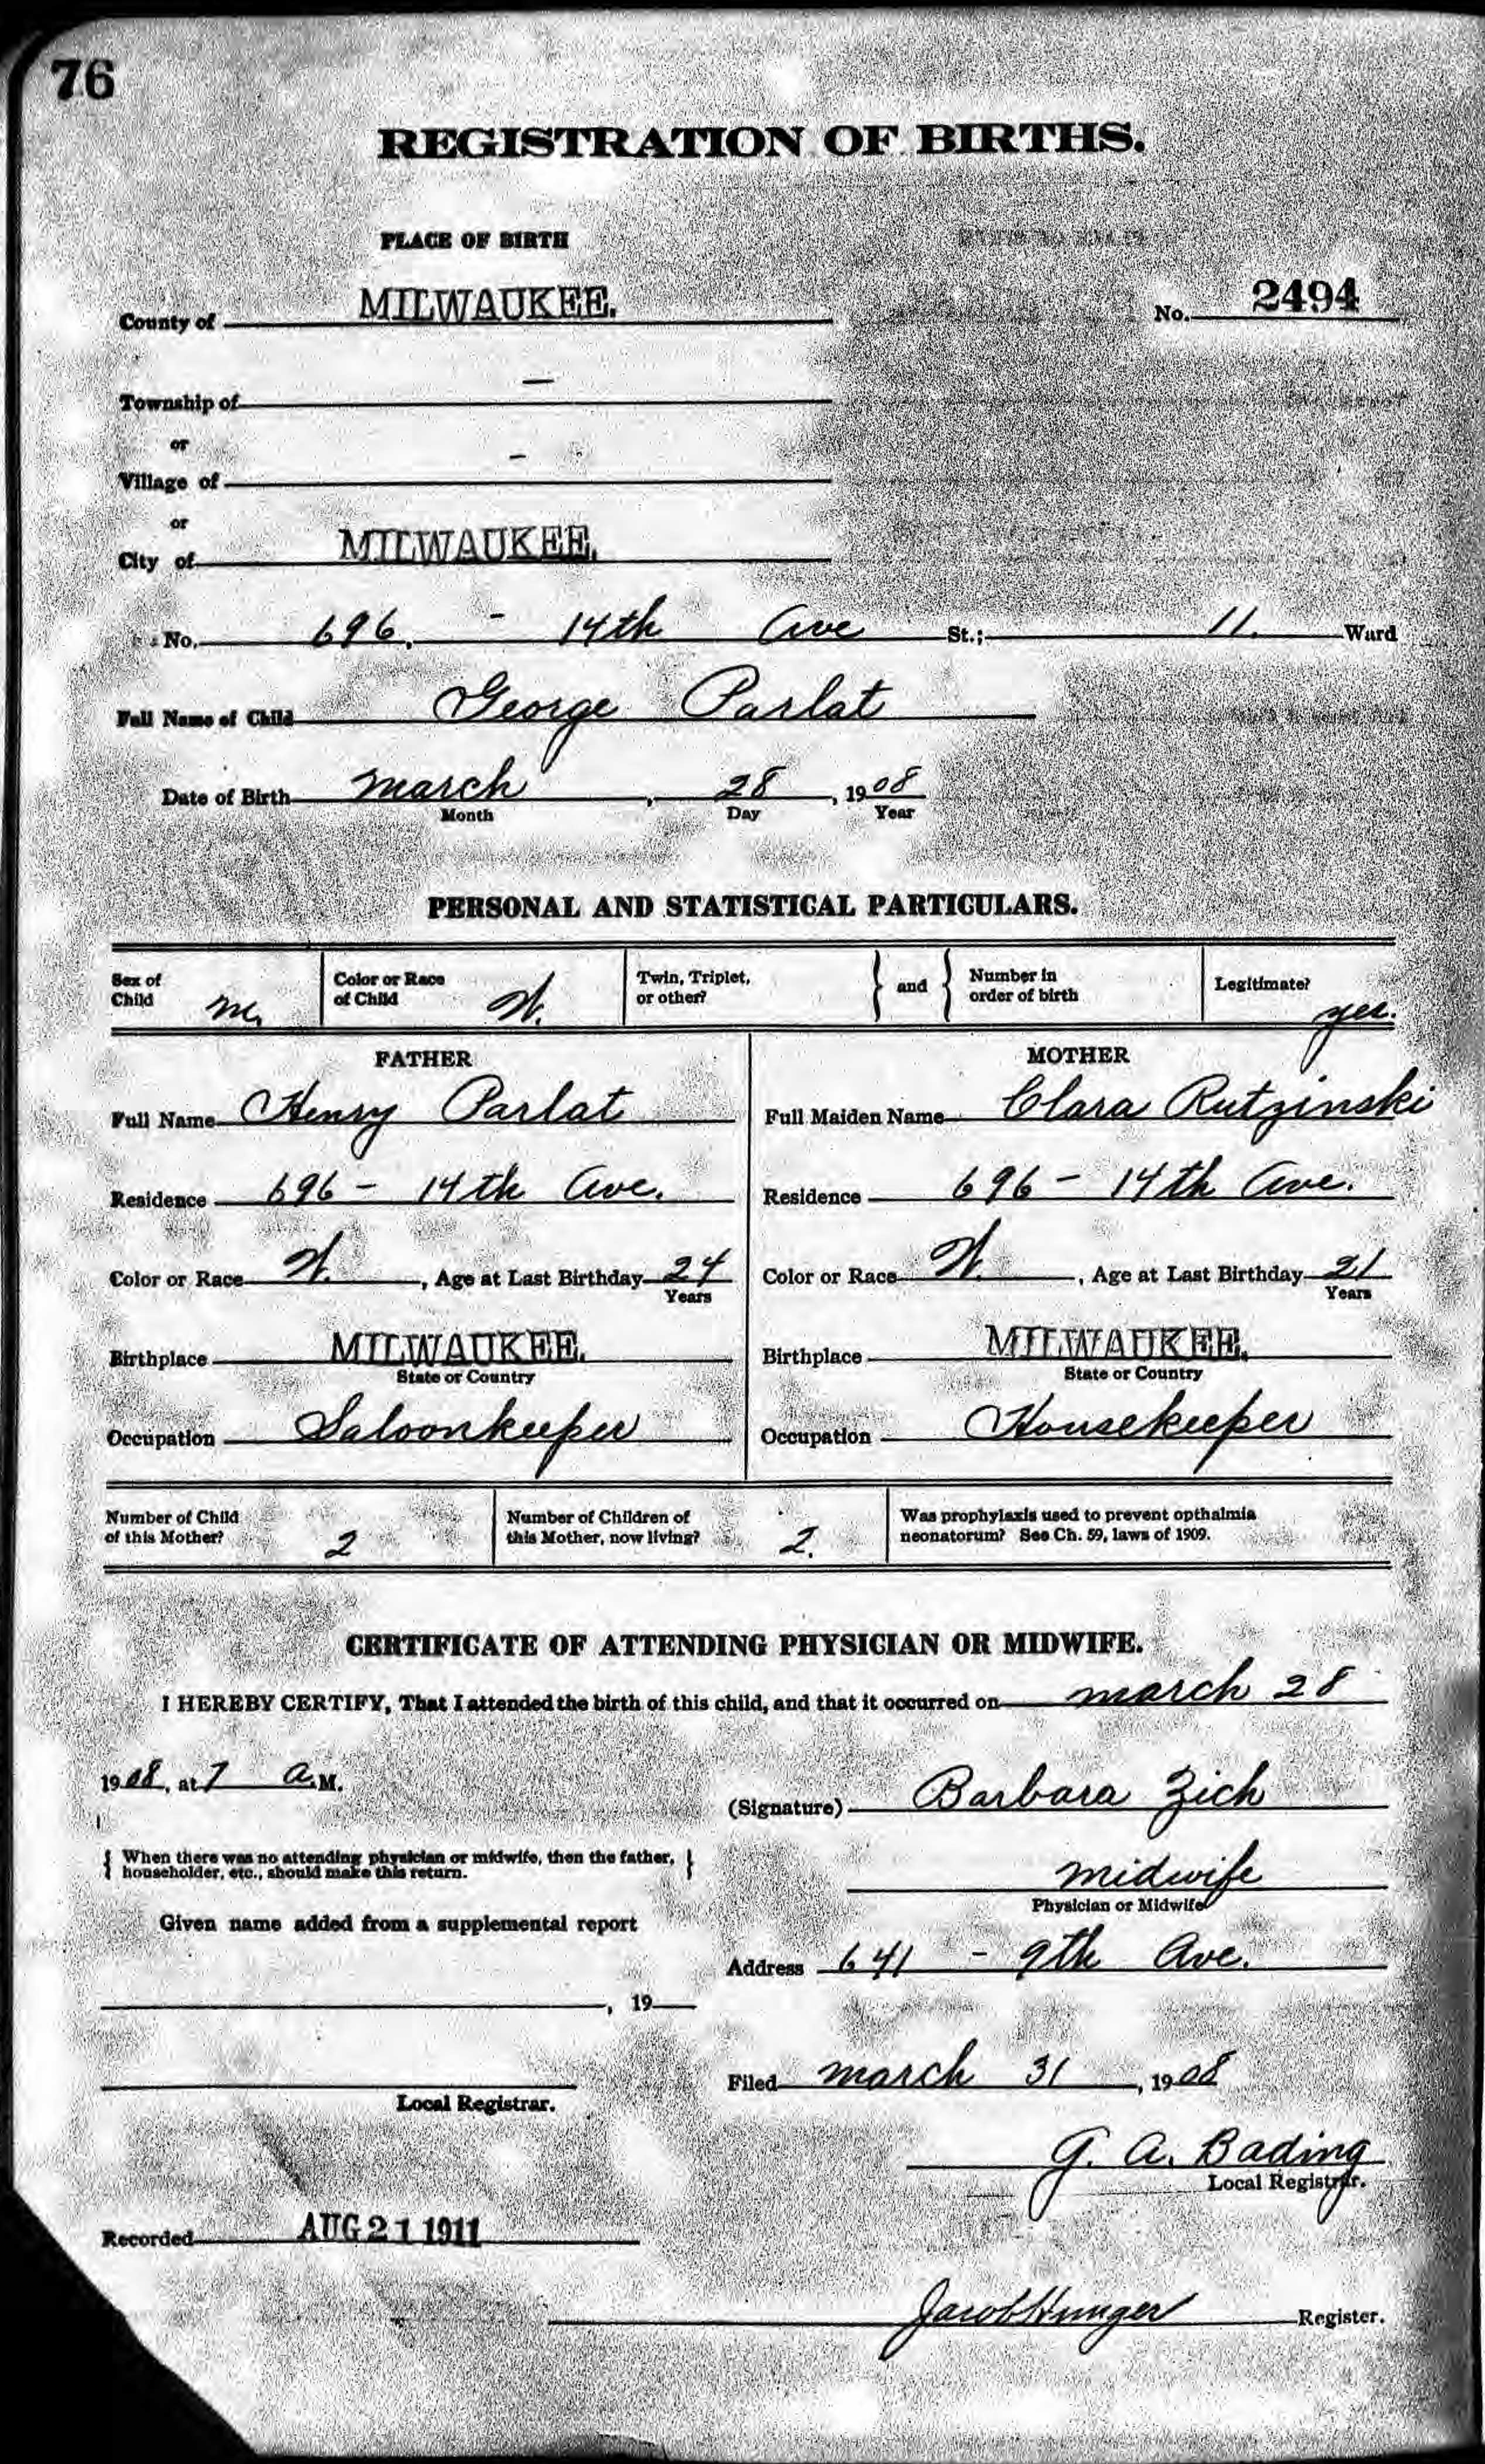 76
REGISTRATION OF BIRTHS.
PLACE OF BIRTH
County of MILWAUKEE.
No. 2494
Township of —
or
Village of –
or
City of MILWAUKEE.
No. 696. - 14th Ave St.; 11. Ward
Full Name of Child George Parlat
Date of Birth March, 28, 1908
Month Day Year
PERSONAL AND STATISTICAL PARTICULARS.
Sex of Child m. Color or Race of Child W. Twin, Triplet, or other? } and { Number in order of birth Legitimate? yes.
FATHER
Full Name Henry Parlat
Residence 696 - 14th Ave.
Color or Race W., Age at Last Birthday 24
Years
Birthplace MILWAUKEE.
State or Country
Occupation Saloonkeeper
MOTHER
Full Maiden Name Clara Rutzinski
Residence 696 - 14th Ave.
Color or Race W., Age at Last Birthday 21
Years
Birthplace MILWAUKEE.
State or Country
Occupation Housekeeper
Number of Child of this Mother? 2
Number of Children of this Mother, now living? 2.
Was prophylaxis used to prevent opthalmia neonatorum? See Ch. 59, laws of 1909.
CERTIFICATE OF ATTENDING PHYSICIAN OR MIDWIFE.
I HEREBY CERTIFY, That I attended the birth of this child, and that it occurred on March 28
1908, at 7 a.M.
(Signature) Barbara Zich
{ When there was no attending physician or midwife, then the father, householder, etc., should make this return. }
midwife
Physician or Midwife
Given name added from a supplemental report
Address 641 - 9th Ave.
, 19
Filed March 31, 1908
Local Registrar.
G. A. Bading
Local Registrar.
Recorded AUG 21 1911
Jacob Hunger Register.